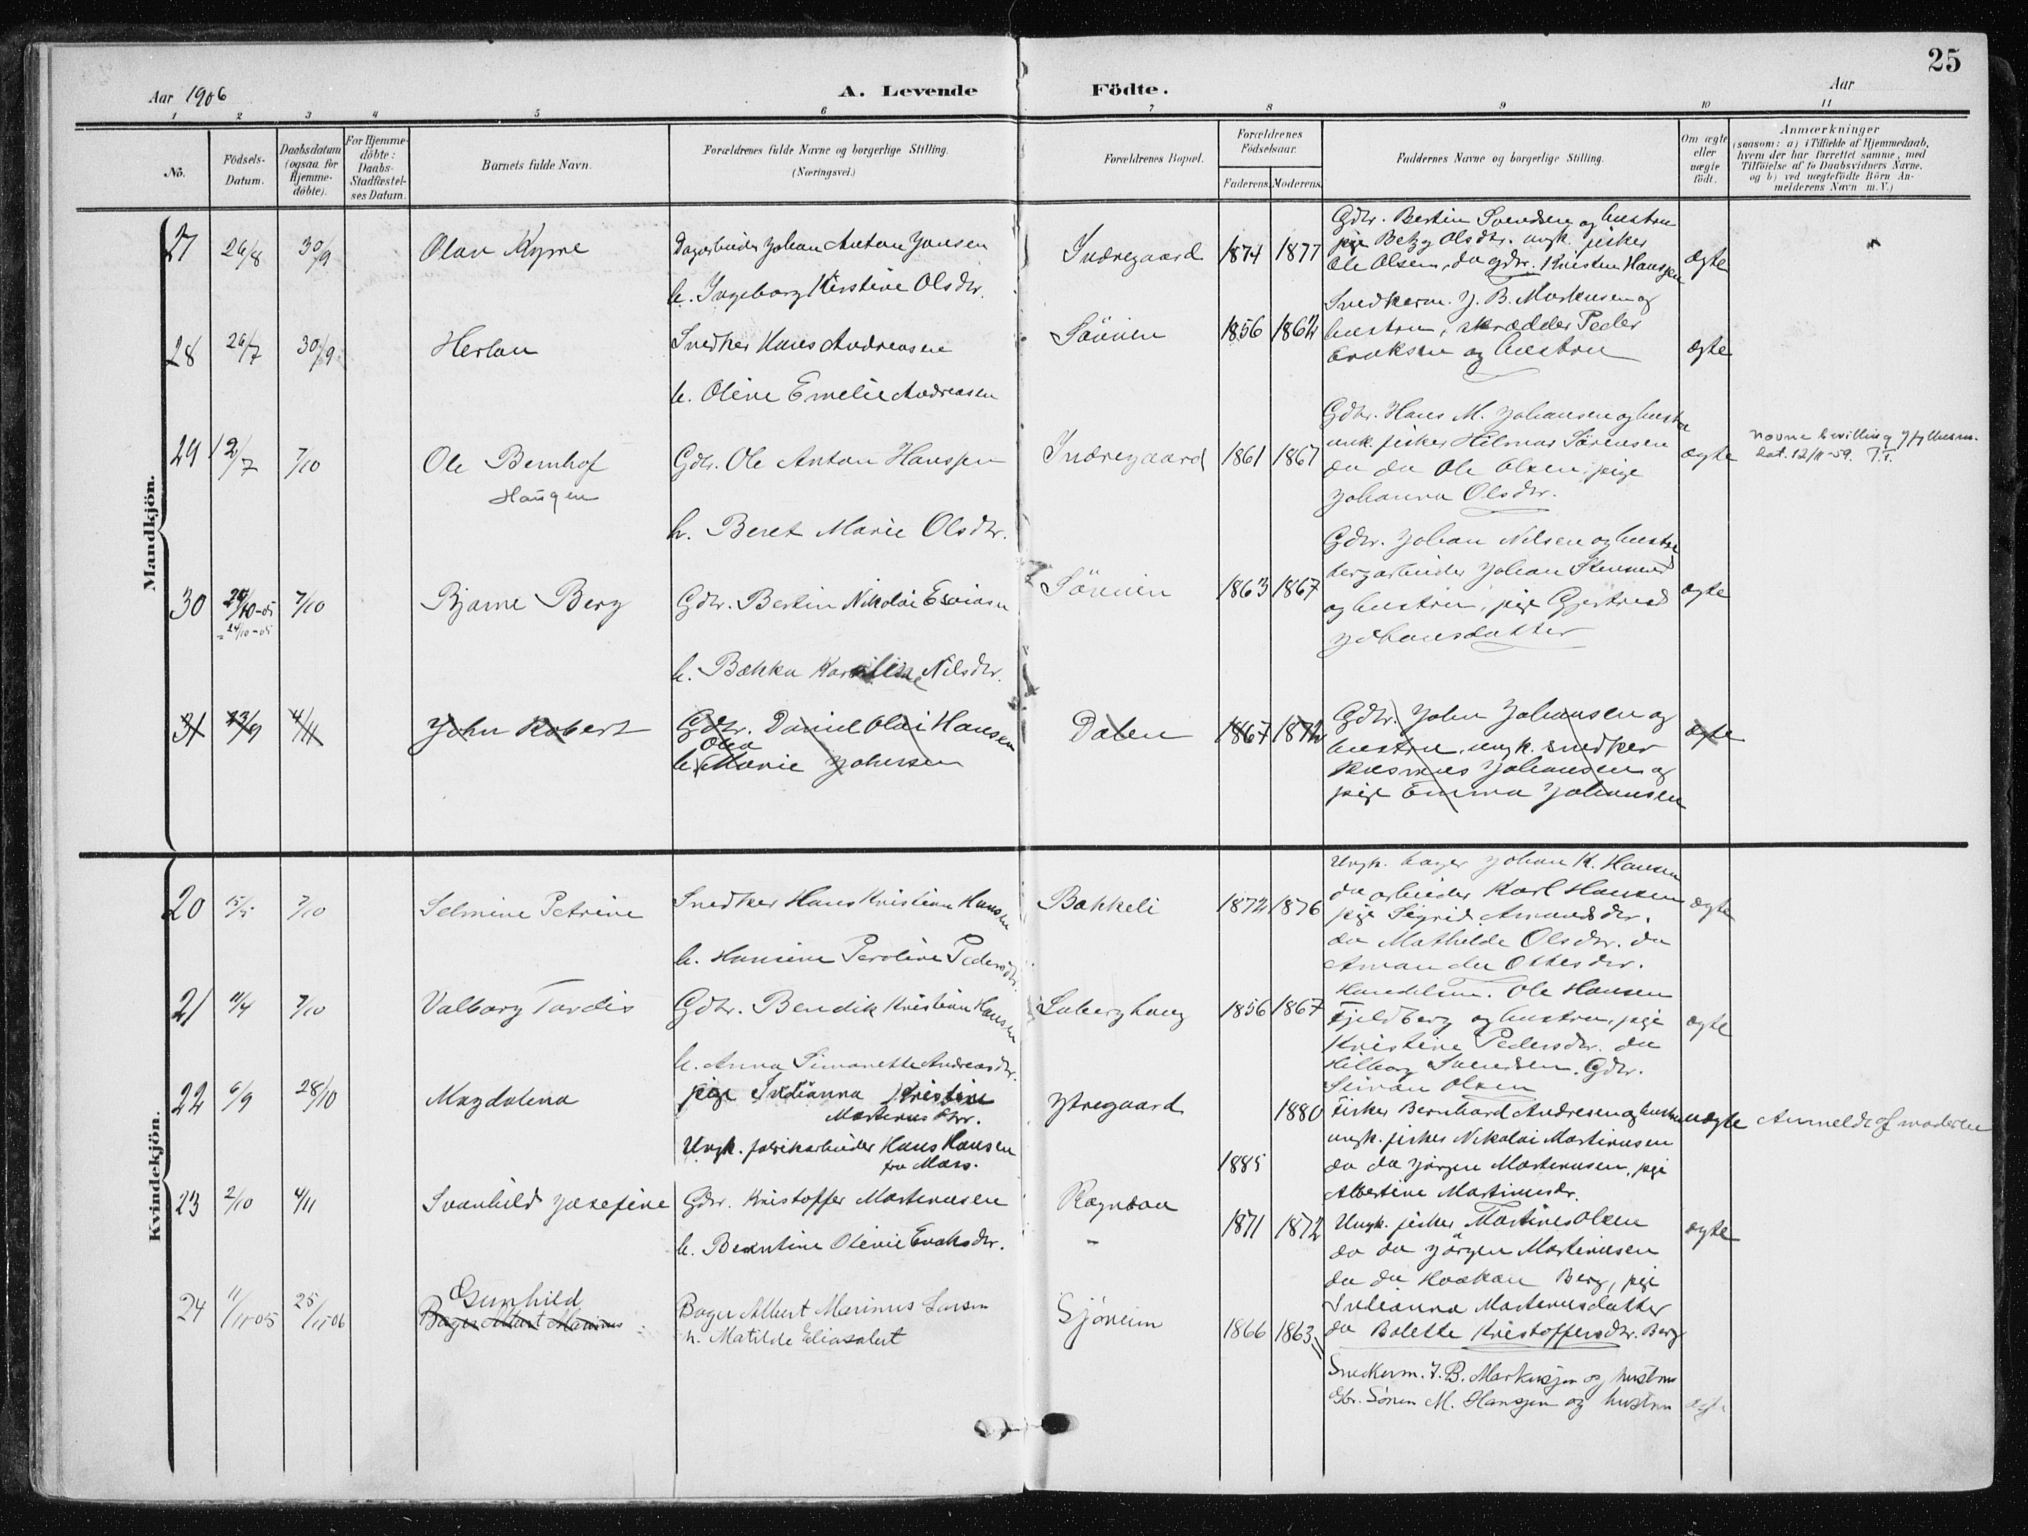 25
Aar 1906
A. Levende Födte.
Aar
1 2 3 4 5 6 7 8 9 10 11
No.
Födsels-Datum.
Daabsdatum (ogsaa for Hjemmedöbte).
For Hjemmedöbte: Daabs-Stadfæstelses Datum.
Barnets fulde Navn.
Forældrenes fulde Navne og borgerlige Stilling.
(Næringsvei.)
Forældrenes Bopæl.
Forældrenes Födselsaar.
Faderens. Moderens.
Faddernes Navne og borgerlige Stilling.
Om ægte eller uægte födt.
Anmærkninger
(saasom: a) i Tilfælde af Hjemmedaab,
hvem der har forrettet samme, med
Tilföielse af to Daabsvidners Navne,
og b) ved uægtefödte Börn An-
melderens Navn m. V.)
Mandkjön.
27 26/8 30/9 Olav Kyrre
Dagarbeider Johan Anton Jansen
h. Ingeborg Kirstine Olsdtr.
Indregaard 1874 1877
Gdbr. Bertin Svendsen og hustru
pige Betzy Olsdtr. ungk. fisker
Ole Olsen, do gdbr. Kristen Hanssen
ægte
28 26/7 30/9 Herlau
Snedker Hans Andreasen
h. Oline Emelie Andreasen
Sörvien 1856 1862
Snedkerm. J. B. Markusen og
hustru, skrædder Peder
Eriksen og hustru
ægte
29 12/7 7/10 Ole Bernhof
Haugen
Gdbr. Ole Anton Hanssen
h. Beret Marie Olsdtr.
Indregaard 1861 1867
Gdbr. Hans M. Johansen og hustru
unk. fisker Hilmar Sörensen
do do Ole Olsen, pige
Johanna Olsdtr.
ægte
Navnebevilling fylkesm.
dat. 12/11-59.
30 24/10-05 7/10 Bjarne Berg
= 24/10-05
Gdbr. Bertin Nikolai Esaiasn
h. Bækka Karoline Nilsdtr.
Sörvien 1863 1867
Gdbr. Johan Nilsen og hustru
bergarbeider Johan
og hustru, pige Gjertrud
Johansdatter
ægte
31 23/9 4/11 John Robert
Gdbr. Daniel Olai Hansen
Olea
h. Marie Johnsen
Dalen 1867 1872
Gdbr. John Johansen og
hustru, ungk. snedker
Rasmus Johansen og
pige Emma Johansen
ægte
Kvindekjön.
20 15/5 7/10 Selmine Petrine
Snedker Hans Kristian Hansen
h. Hansine Peroline Pedersdtr.
Bakkeli 1872 1876
Ungk. bager Johan K. Hansen
do arbeider Karl Hansen
pige Sigrid Amundsdtr.
do Mathilde Olsdtr. do
Amanda Ottesdtr.
ægte
21 11/4 7/10 Valborg Tordis
Gdbr. Bendik Kristian Hansen
h. Anna Simonette Andreasdtr.
Luberghaug 1856 1867
Handelsm. Ole Hansen
Fjeldberg og hustru, pige
Kristine Pedersdtr. do
Hilborg Svendsen, Gdbr.
Simon Olsen
ægte
22 6/9 28/10 Magdalena
pige Julianna Kristine
Martinusdtr.
Ungk. fabrikarbeider Hans Hansen
fra Mars.
Ytregaard 1885 1880
Fisker Bernhard Andresen og hustru
ungk. fisker Nikolai Martinusen
do do Jörgen Martinusen, pige
Albertine Martinusdr.
uægte Anmeldt af moderen
23 2/10 4/11 Svanhild Josefine
Gdbr. Kristoffer Martinusen
h. Berntine Olivie Enoksdtr.
Rægndan
-
1871 1872
Ungk. fisker Martines Olsen
do do Jörgen Martinusen
do do Haakan Berg, pige
Julianna Martinusdatter
do Bolette Kristoffersdtr. Berg
ægte
24 11/11-05 25/11-06 Gunhild
Bager Albert Marinus
Bager Albert Marinus Larsen
h. Matilde Eliasabet
Sjöneim 1866 1863
Snedkerm. J. B. Markussen og hustru
Gbr. Sören M. Hanssen og hustru
ægte